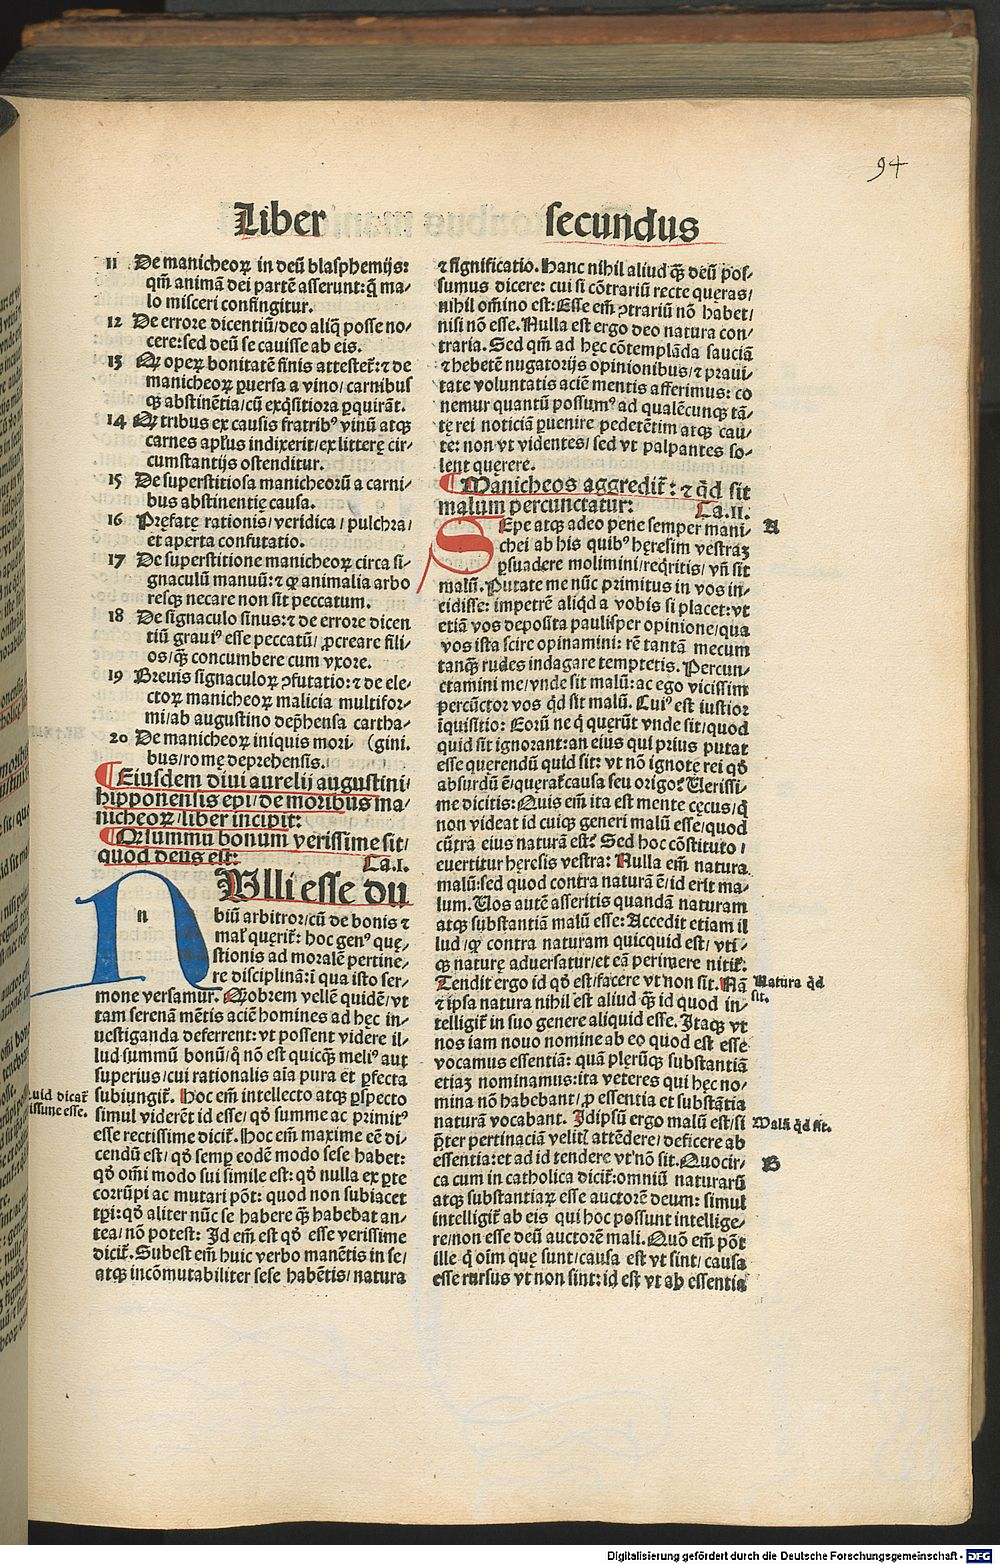 94
Liber secundus
11 De manicheoꝝ in deū blasphemijs:
qm̄ animā dei partē asserunt: q̄ ma-
lo misceri confingitur.
12 De errore dicentiū/deo aliq̄ posse no-
cere: sed deū se cauisse ab eis.
13 Qꝛ operꝫ bonitatē finis attestet̄: ⁊ de
manicheoꝝ ꝑuersa a vino/carnibus
qꝫ abstinētia/cū exq̄sitiora ꝑquirāt.
14 Qꝛ tribus ex causis fratribꝰ vinū atqꝫ
carnes apl̄us indixerit/ex litterę cir-
cumstantijs ostenditur.
15 De superstitiosa manicheorū a carni-
bus abstinentię causa.
16 Pręfatę rationis/veridica/pulchra/
et aperta confutatio.
17 De superstitione manicheoꝝ circa si-
gnaculū manuū: ⁊ qꝛ animalia arbo
resqꝫ necare non sit peccatum.
18 De signaculo sinus: ⁊ de errore dicen
tiū grauiꝰ esse peccatū/ ꝓcreare fili-
os/q̄ꝫ concumbere cum vxore.
19 Breuis signaculoꝝ ꝯfutatio: ⁊ de ele-
ctoꝝ manicheoꝝ malicia multifor-
mi/ab augustino dep̄hensa cartha-
20 De manicheoꝝ iniquis mori- (gini.
bus/romę deprehensis.
Eiusdem diui aurelij augustini/
hipponensis epi/de moribus ma-
nicheoꝝ/liber incipit:
Qꝛ summū bonum verissime sit/
quod deus est: Ca.I.
n
Ulli esse du
biū arbitror/cū de bonis ⁊
mal̓ quęrit̄: hoc genꝰ quę-
stionis ad moralē pertine-
re disciplinā: ī qua isto ser-
mone versamur. Qꝛobrem vellē quidē/vt
tam serenam mētis aciē homines ad hęc in-
uestiganda deferrent: vt possent videre il-
lud summū bonū/q̄ nō est quicq̄ꝫ meliꝰ aut
superius/cui rationalis aīa pura et ꝑfecta
subiungit̄. Hoc em̄ intellecto atqꝫ ꝑspecto
simul viderēt id esse/qd̄ summe ac primitꝰ
esse rectissime dicit̄. Hoc em̄ maxime eē di-
cendū est/qd̄ semꝑ eodē modo sese habet:
qd̄ om̄i modo sui simile est: qd̄ nulla ex ꝑte
corrūpi ac mutari pōt: quod non subiacet
tꝑi: qd̄ aliter nūc se habere q̄ꝫ habebat an-
tea/nō potest: Id em̄ est qd̄ esse verissime
dicit̄. Subest em̄ huic verbo manētis in se/
atqꝫ incōmutabiliter sese habētis/natura
⁊ significatio. Hanc nihil aliud q̄ꝫ deū pos-
sumus dicere: cui si cōtrariū recte quęras/
nihil om̄ino est: Esse em̄ ꝯtrariū nō habet/
nisi nō esse. Nulla est ergo deo natura con-
traria. Sed qm̄ ad hęc cōtemplāda sauciā
⁊ hebetē nugatorijs opinionibus/⁊ praui-
tate voluntatis aciē mentis afferimus: co
nemur quantū possumꝰ ad qualēcunqꝫ tā-
tę rei noticiā ꝑuenire pedetētim atqꝫ cau-
te: non vt videntes/ sed vt palpantes so-
lent quęrere.
Manicheos aggredit̄: ⁊ qd̄ sit
malum percunctatur: Ca.II.
Sępe atqꝫ adeo pene semper mani- A
chei ab his quibꝰ hęresim vestraꝫ
ꝑsuadere molimini/reqritis/ vn̄ sit
malū. Putate me nūc primitus in vos in-
cidisse: impetrē aliqd̄ a vobis si placet: vt
etiā vos deposita paulisper opinione/qua
vos ista scire opinamini: rē tantā mecum
tanqꝫ rudes indagare temptetis. Percun-
ctamini me/vnde sit malū: ac ego vicissim
percūctor vos qd̄ sit malū. Cuiꝰ est iustior
īquisitio: Eorū ne q̄ quęrūt vnde sit/quod
quid sit ignorant: an eius qui prius putat
esse querendū quid sit: vt nō ignotę rei qd̄
absurdū ē/querat̄ causa seu origo? Verissi-
me dicitis: Quis em̄ ita est mente cęcus/q̄
non videat id cuiqꝫ generi malū esse/quod
cūtra eius naturā est? Sed hoc cōstituto/
euertitur hęresis vestra: Nulla em̄ natura
malū: sed quod contra naturā ē/id erit ma-
lum. Vos autē asseritis quandā naturam
atqꝫ substantiā malū esse: Accedit etiam il
lud/qꝛ contra naturam quicquid est/ vti-
qꝫ naturę aduersatur/et eā perimere nitit̄:
Tendit ergo id qd̄ est/facere vt non sit. Nā Natura qd̄
⁊ ipsa natura nihil est aliud q̄ꝫ id quod in- sit.
telligit̄ in suo genere aliquid esse. Itaqꝫ vt
nos iam nouo nomine ab eo quod est esse
vocamus essentiā: quā plerūqꝫ substantiā
etiaꝫ nominamus: ita veteres qui hęc no-
mina nō habebant/ꝓ essentia et substātia
naturā vocabant. Idipsū ergo malū est/si Malū qd̄ sit.
p̄ter pertinaciā velit̄ attēdere/deficere ab
essentia: et ad id tendere vt nō sit. Quocir- B
ca cum in catholica dicit̄: omniū naturarū
atqꝫ substantiaꝝ esse auctorē deum: simul
intelligit̄ ab eis qui hoc possunt intellige-
re/non esse deū auctorē mali. Quō em̄ pōt
ille q̄ oīm quę sunt/causa est vt sint/ causa
esse rursus vt non sint: id est vt ab essentia
Digitalisierung gefördert durch die Deutsche Forschungsgemeinschaft - DFG